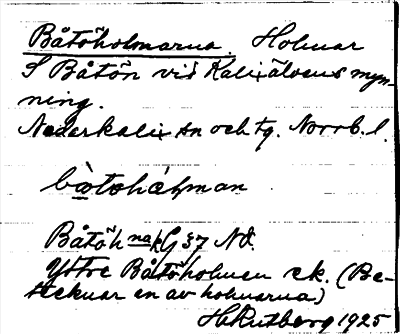 Båtöholmarna. Holmar
S Båtön vid Kalixälvens myn-
ning.
Nederkalix sn och tg. Norrb. l.
Båtöh na G 37 NO.
Yttre Båtöholmen ek. (Be-
tecknar en av holmarna)
H. Rutberg 1925